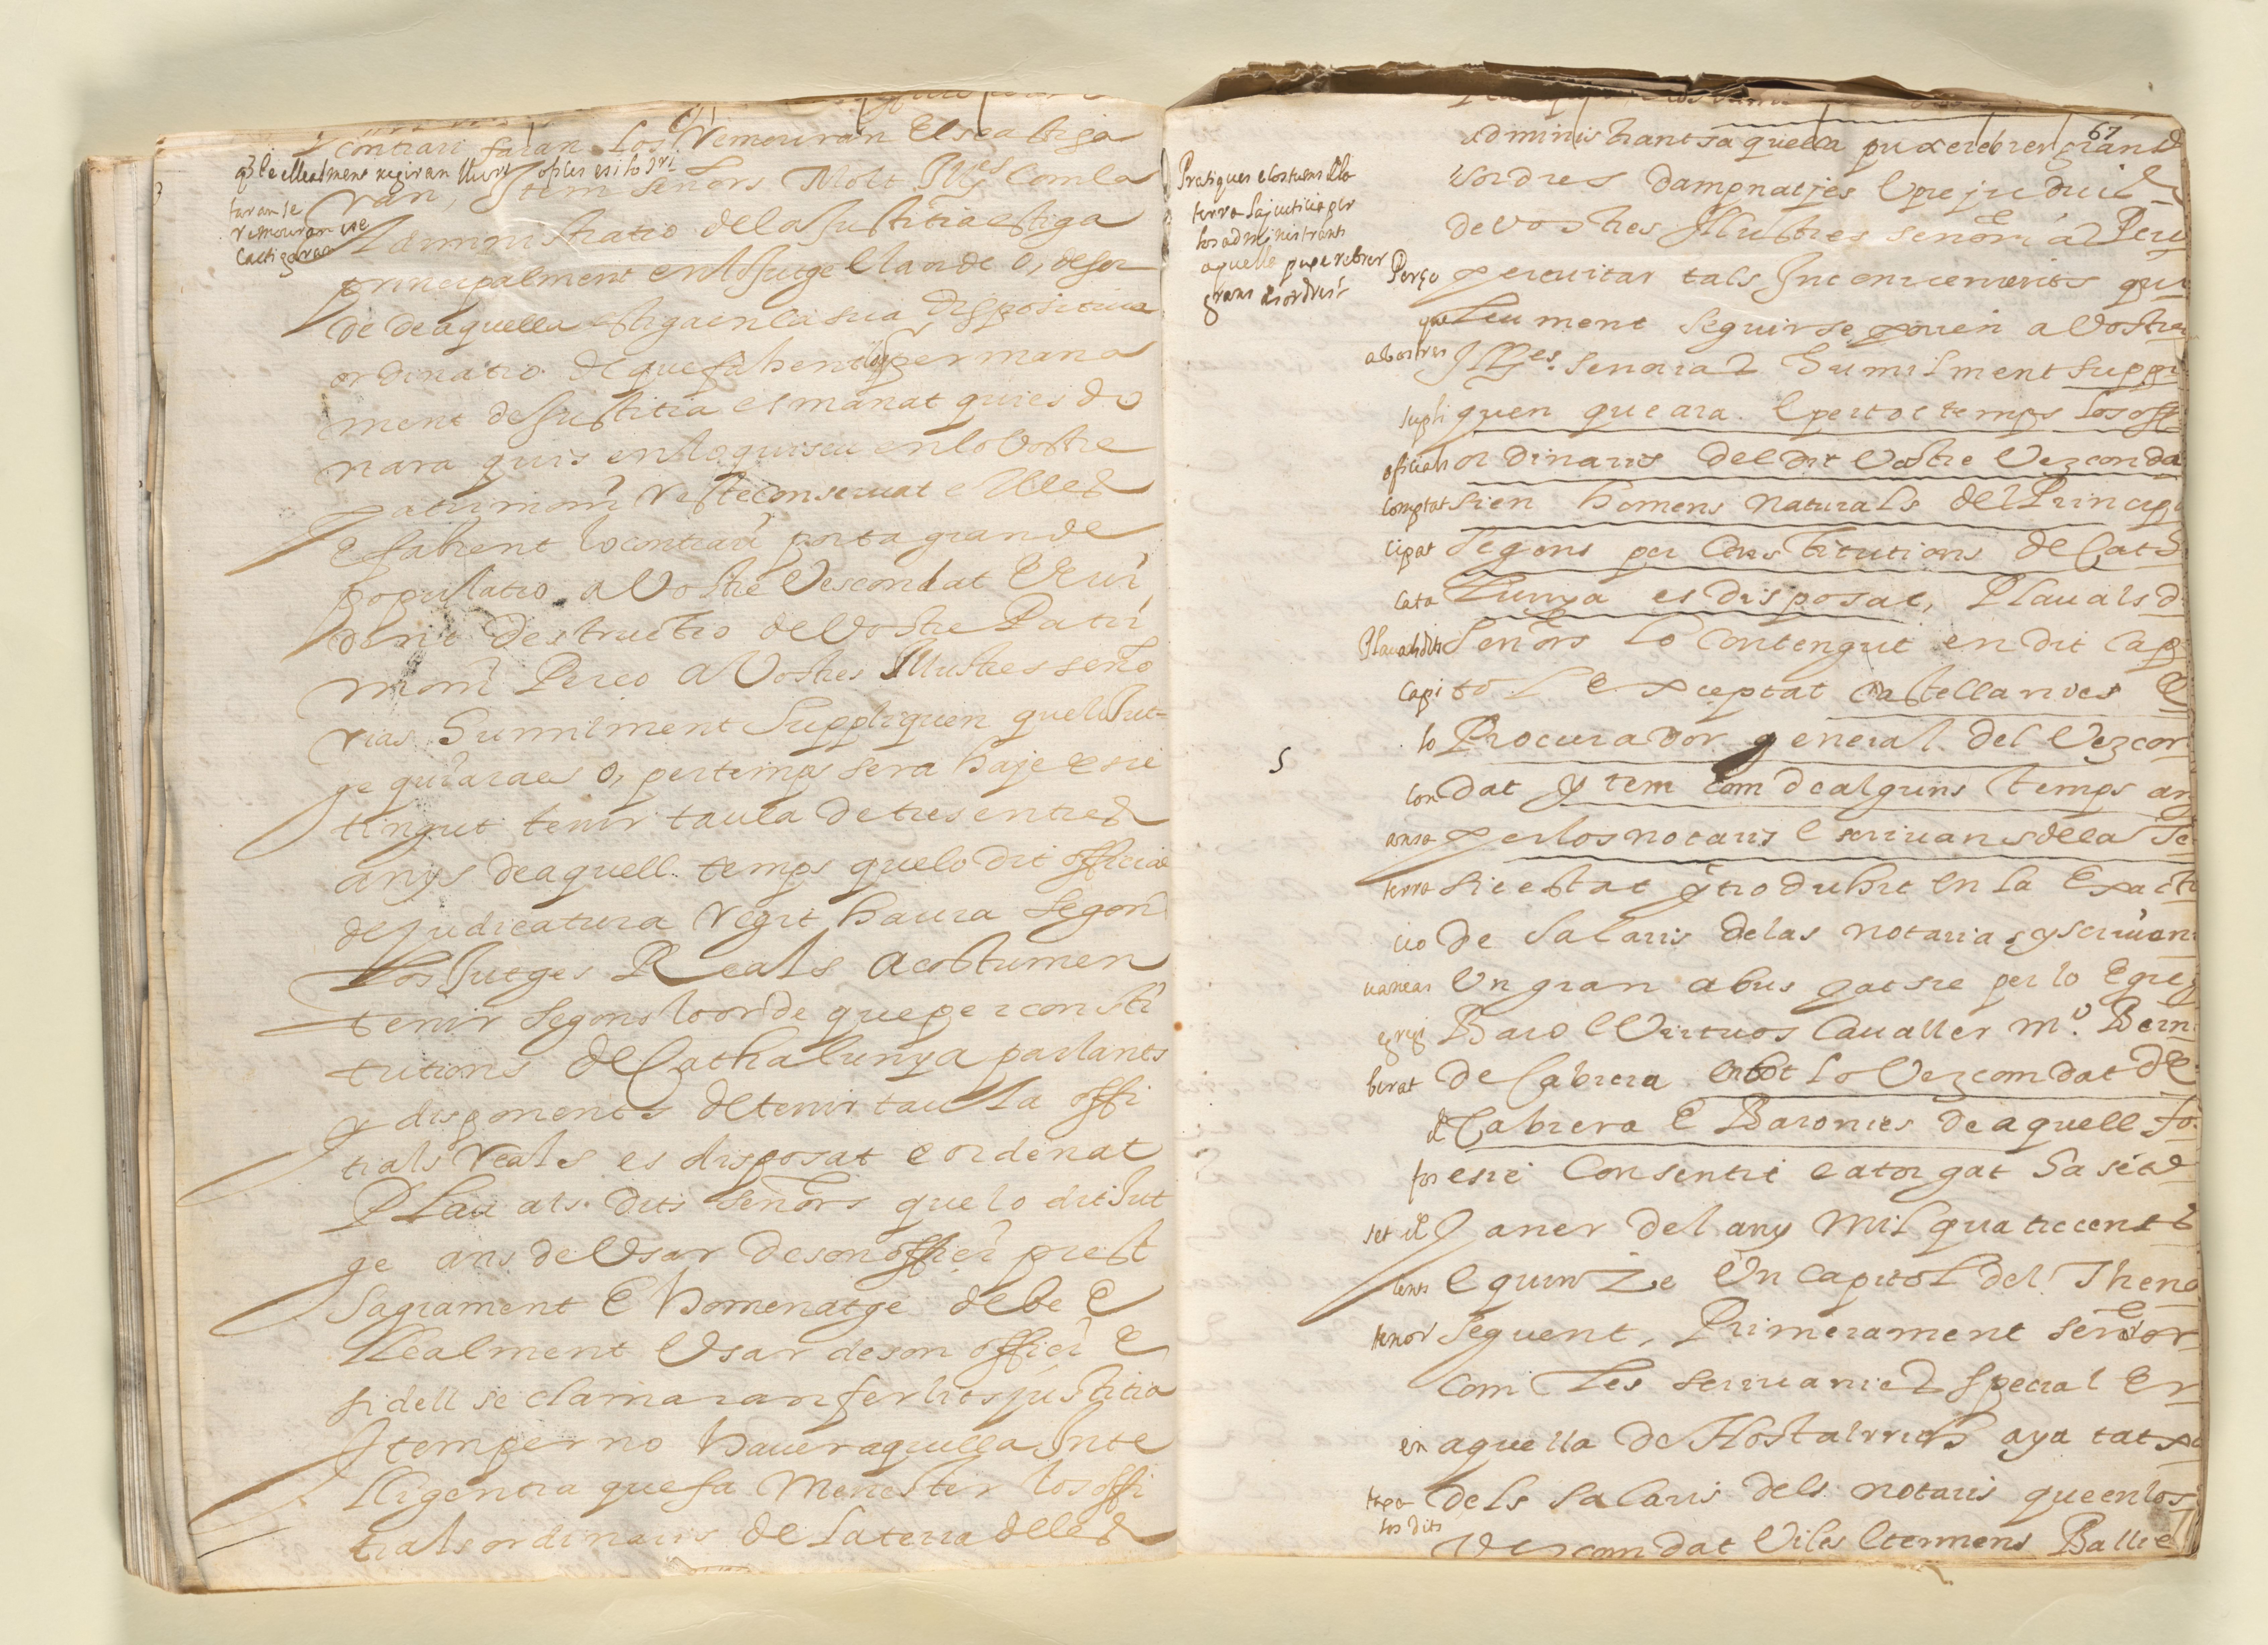 contrari faran los remouran e los castiga
q̃ be e llealment regiran llurs officis e si lo ɔri
faran se
remouran e se
castigaran
ran, Item señors Molt Ill.es Com la
Administratio de la Justitia estiga
principalment en lo Jutge e la orde o, desor
de de aquella estiga en la sua dispositiva
ordinatio de que fahent
ment de Justitia es manat qui es do
nara quis en lo quiscu en lo Vostre
patrimoni reste conservat e Illes
E fahent lo contrari porta gran de
populatio a Vostre Vescondat E evi
dent destructio de Vostre Patri
moni Perço a Vostres Illustres seño
rias Humilment Suppliquen que lo Jut
ge qui ara es o, per temps sera haje e sie
tingut tenir taula de tres en tres
anys de aquell temps que lo dit offici
de judicatura regit haura segons
los Jutges Reals acostumen
tenir segons lo orde que per consti
tutions de Cathalunya parlants
y disponents de tenir taula offi
tials reals es disposat e ordenat
Plau als dits señors que lo dit Jut
ge ans de Usar de son offici prest
Sagrament E homenatge de be E
llealment Usar de son offici E
fidell se clamaran fer los justitia
Item per no haver aquella Inte
lligentia que fa menester los offi
tials ordinaris de la terra de les
67
Pratiques e costums de la
terra la justicia per
los administrants
aquella pux e rebrer
grans disordres
administrants aquella pux e rebrer grans
isordres dampnatjes e prejudicis
de vostres Illustres señori
Perço per evitar tals Inconvenients qui
que leument seguirse poden a Vostres
a vostres Ill.es senorias Humilment suppli
supli quen que ara e per tot temps los offi
officials ordinaris del dit Vostre Vezconda
comptat sien homens naturals del Princi
cipat segons per Constitutions de Cata
Cata lunya es disposat, Plau als d
Plau als dits señors lo contengut en dit cap
capi tol exceptat castellanies E
lo Procurador general del Vezcon
con dat Item com de alguns temps an
ansa per los notaris e scrivans de la te
terra sie estat introduhit en la exacti
cio de salaris de las notarias y scrivan
vanias Un gran abus jatsie per lo Egre
egregi Baro e Virtuos Cavaller m.o Bern
bernat de Cabrera en tot lo Vezcomdat de
de Cabrera E Baronies de aquell fo
for esie consentit e atorgat a set de
set de Janer del any Mil quatrecents
cents e quinze Un capitol del Theno
tenor seguent, Primerament señor
Com les scrivanies special En
en aquella de Hostalrrich aya tatxa
dels salaris dels notaris que en los
los dits Vescomdat Viles e termens Balli
5